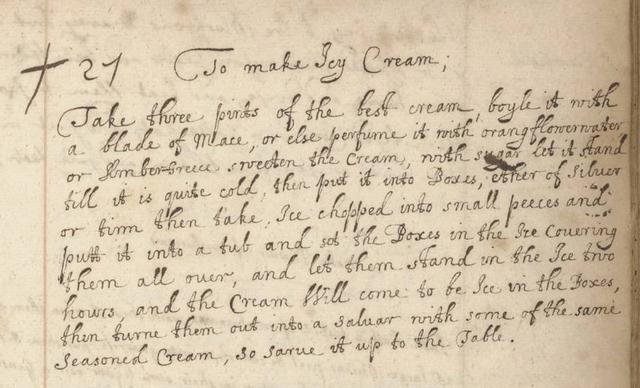 27 To make Icy Cream;
Take three pints of the best cream, boyle it with
a blade of Mace, or else perfume it with orangflowerwater
or AmberGreece sweeten the Cream, with sugar let it stand
till it is quite cold, then put it into Boxes, ether of Silver
or tinn then take, Ice chopped into small peeces and
putt it into a tub and set the Boxes in the Ice couering
them all over, and let them stand in the Ice two
hours, and the Cream Will come to be Ice in the Boxes,
then turne them out into a saluar with some of the same
seasoned Cream, so sarue it up to the Table.